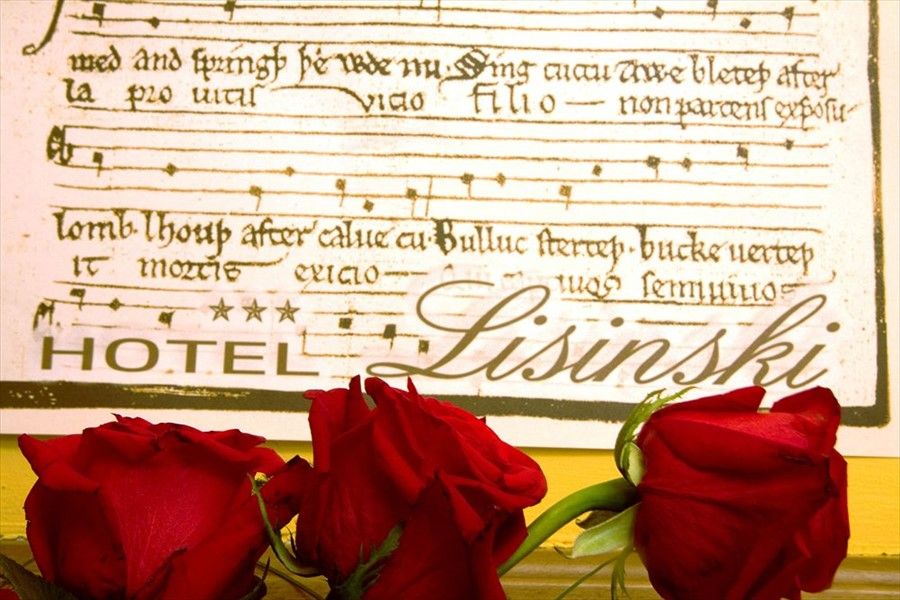 med and springþ þe wde nu. Sing cuccu Awe bleteþ after
la pro vitis vicio filio — non parcens exposu-
lomb. lhouþ after calve cu. Bulluc sterteþ. bucke verteþ
it mortis exicio —
semivivos
HOTEL Lisinski